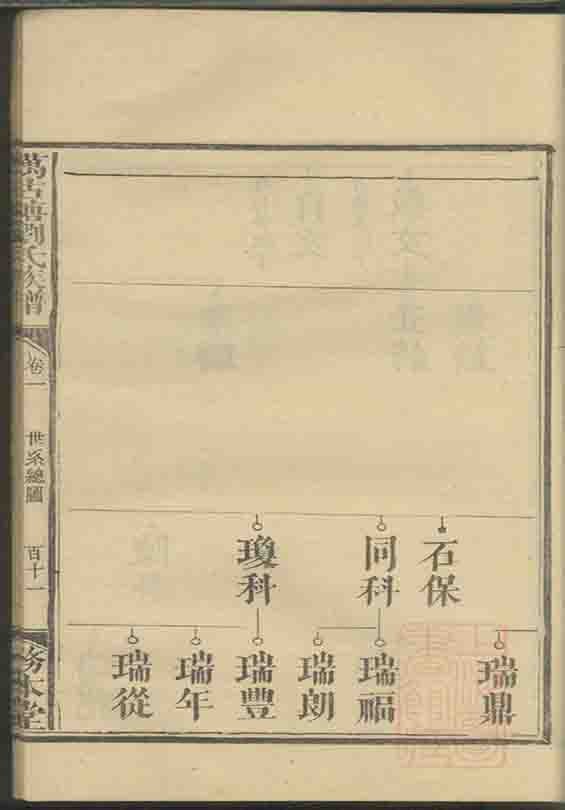 石保
同科
瓊科
瑞鼎
瑞福
瑞朗
瑞豐
瑞年
瑞從
萬古塘劉氏族譜
卷一
世系總圖
百十一
務本堂